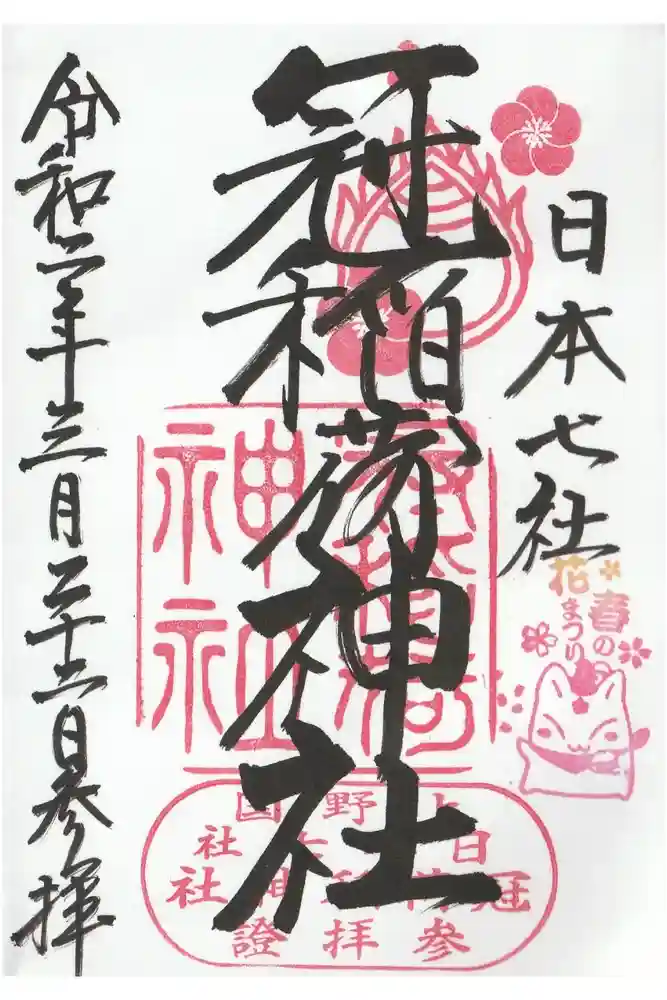 日本七社
冠稲荷神社
令和二年三月二十二日参拝
春の
花まつり
神社
上野国
日本七社
冠稲荷神社
参拝證